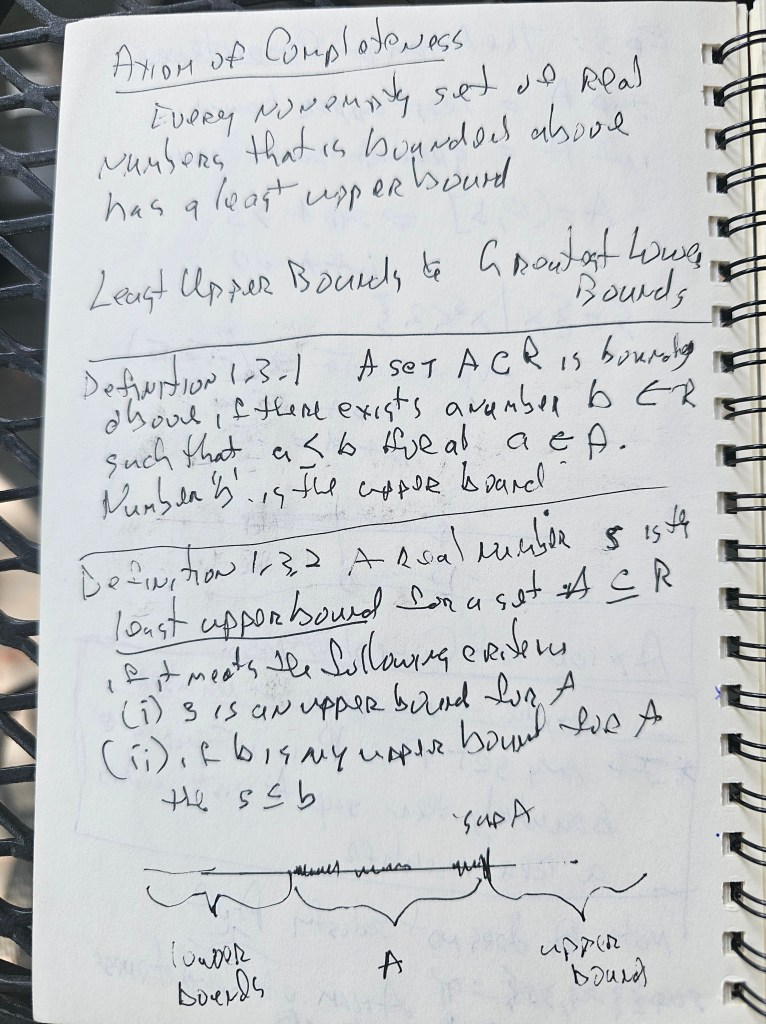 Axiom of Completeness
Every nonempty set of Real
Numbers that is bounded above
has a least upper bound
Least Upper Bounds & Greatest Lower
Bounds
Definition 1.3.1 A set A ⊂ R is bounded
above if there exists a number b ∈ R
such that a ≤ b for all a ∈ A.
Number 'b' is the upper bound
Definition 1.3.2 A Real number s is the
least upper bound for a set A ⊆ R
if it meets the following criteria
(i) s is an upper bound for A
(ii) if b is any upper bound for A
the s ≤ b
sup A
lower
bounds
A
upper
bound